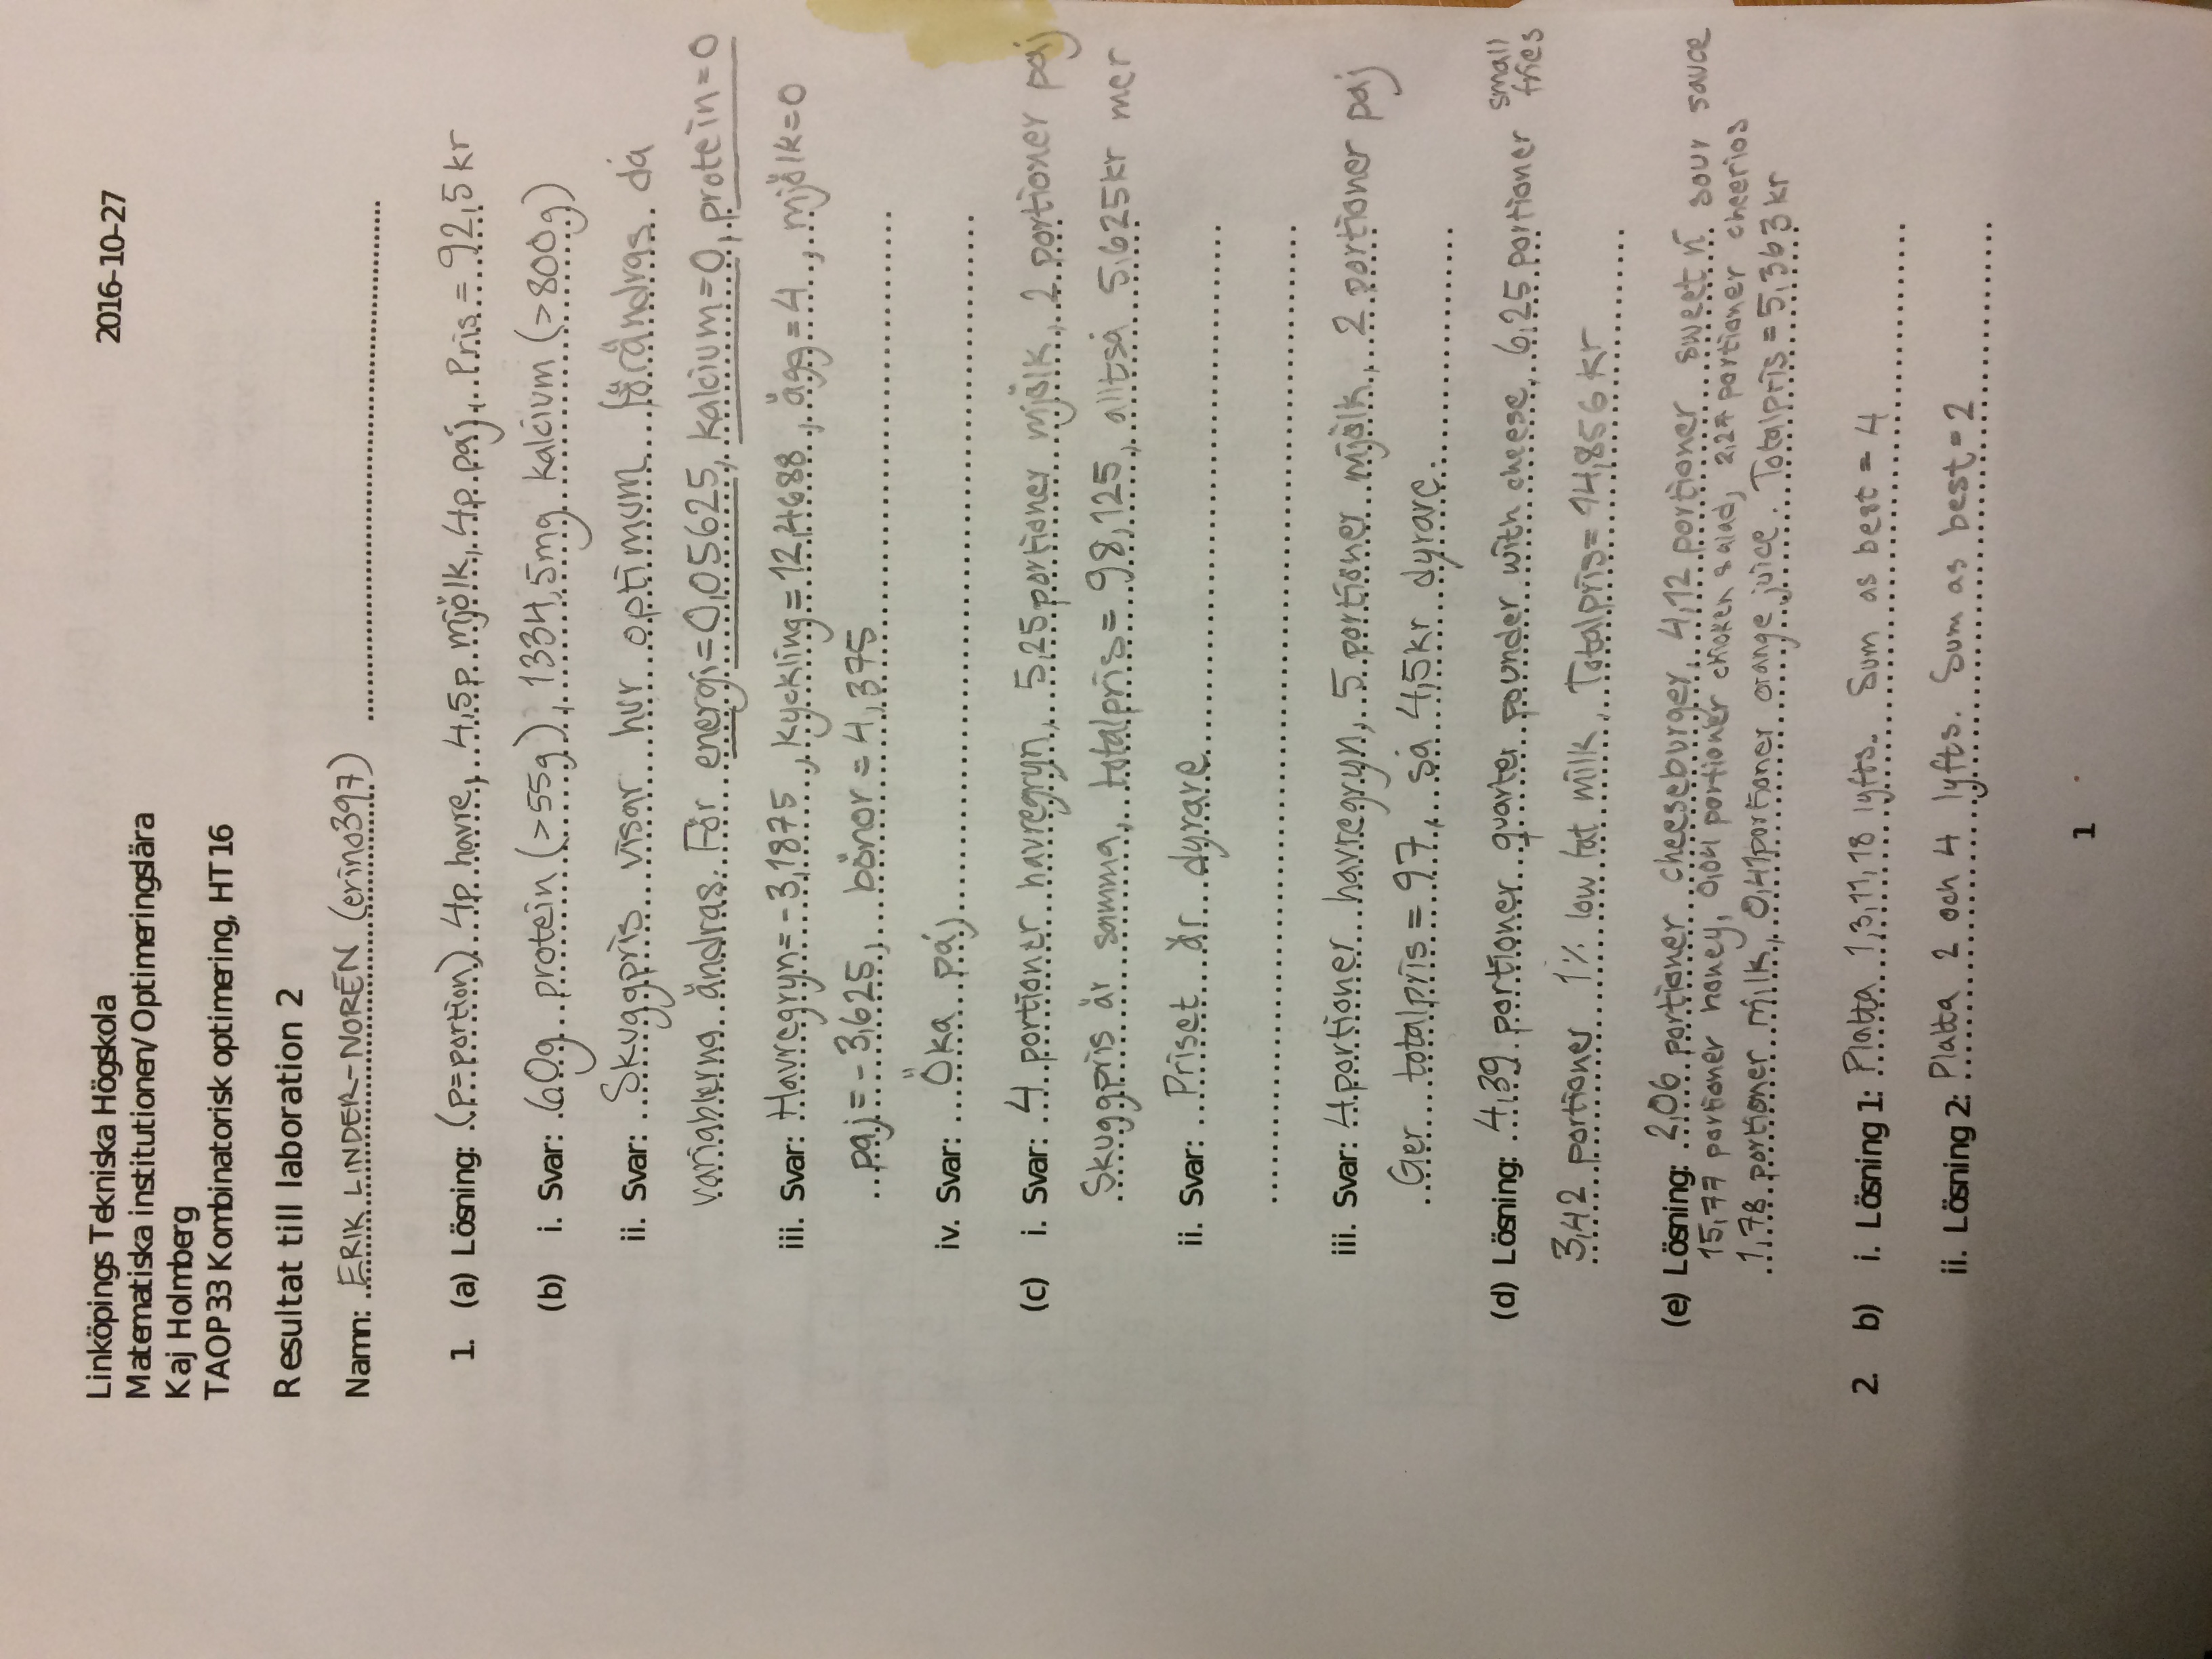 Linköpings Tekniska Högskola
2016-10-27
Matematiska institutionen/Optimeringslära
Kaj Holmberg
TAOP33 Kombinatorisk optimering, HT16
Resultat till laboration 2
Namn: ERIK LINDER-NORÉN (erino397)
1. (a) Lösning: (p=portion) 4p havre, 4,5p mjölk, 4p paj, Pris = 92,5 kr
(b) i. Svar: 60g protein (>55g), 1334,5mg kalcium (>800g)
ii. Svar: Skuggpris visar hur optimum förändras då
variablerna ändras. För energi=0,05625, kalcium=0, protein=0
iii. Svar: Havregryn=-3,1875, kyckling=12,4688, ägg=4, mjölk=0
paj=-3,625, bönor=4,375
iv. Svar: Öka paj
(c) i. Svar: 4 portioner havregryn, 5,25 portioner mjölk, 2 portioner paj
Skuggpris är samma, totalpris=98,125, alltså 5,625kr mer
ii. Svar: Priset är dyrare
iii. Svar: 4 portioner havregryn, 5 portioner mjölk, 2 portioner paj
Ger totalpris = 97, så 4,5kr dyrare.
(d) Lösning: 4,39 portioner quarter pounder with cheese, 6,25 portioner small fries
3,42 portioner 1% low fat milk, Totalpris= 14,856 kr
(e) Lösning: 2,06 portioner cheeseburger, 4,12 portioner sweet n sour sauce
15,77 portioner honey, 0,04 portioner chicken salad, 2,27 portioner cheerios
1,78 portioner milk, 0,41portioner orange juice. Totalpris = 5,363 kr
2. b) i. Lösning 1: Platta 1,3,11,18 lyfts. Sum as best = 4
ii. Lösning 2: Platta 2 och 4 lyfts. Sum as best = 2
1